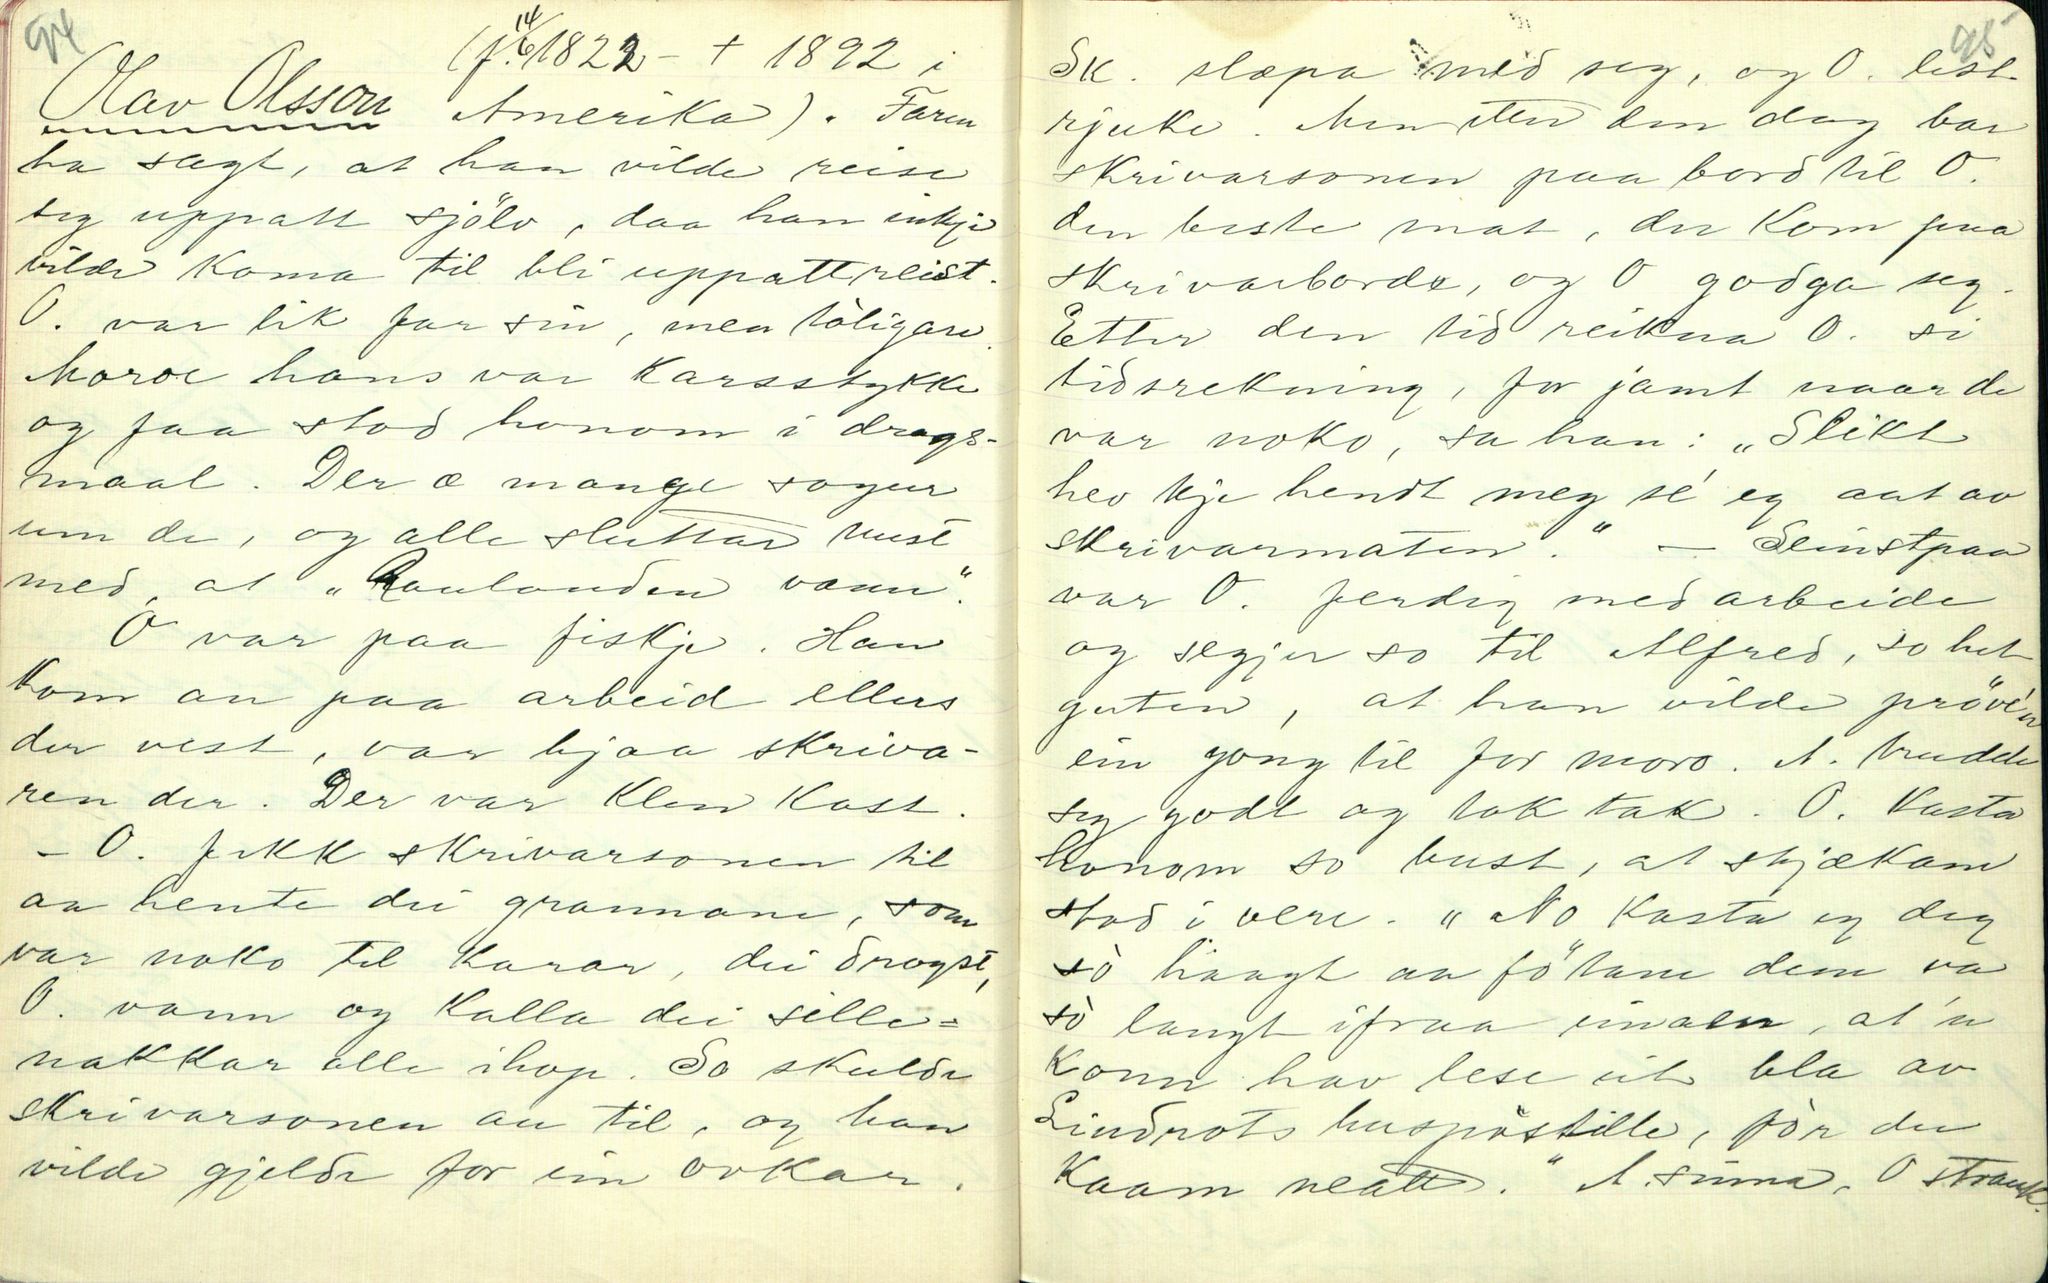 94
(f. 14/6 1822 - + 1892 i
Olav Olsson Amerika). Faren
ha sagt, at han vilde reise
seg uppatt sjölv, daa han inkje
vilde koma til bli uppattreist.
O. var lik far sin, men tòligare.
Moroe hans var karsstykke
og faa stod honom i drags-
maal. Der æ mange sogur
um de, og alle sluttar mest
med, at "Raulanden vann".
O var paa fiskje. Han
kom an paa arbeid ellers
der vest, var hjaa skriva-
ren der. Der var klen kost.
- O. fekk skrivarsonen til
aa hente dei grannane, som
var noko til karar, dei drogst,
O. vann og kalla dei sille=
nakkar alle ihop. So skulde
skrivarsonen au til, og han
vilde gjelde for ein ovkar.
95
Sk. slæpa med seg, og O. lest
rjuke. Men etter den dag bar
skrivarsonen paa bord til O.
den beste mat, der kom paa
skrivarborde, og O godga seg.
Etter den tid reikna O. si
tidsrekning, for jamt naar de
var noko, sa han: "Slikt
hev kje hendt meg sé eg aat av
skrivarmaten." - Seinstpaa
var O. ferdig med arbeide
og segjer so til Alfred, so het
guten, at han vilde pröve'n
ein gong til for moro. A. budde
seg godt og tok tak. O. kasta
honom so bust, at skjækane
stod i vere. "No kasta eg deg
sò haagt aa fö'tane dem va
sò langt ifraa einaen, at'n
konn hav lese eit bla av
Lindrots huspostille, fòr du
kaam neatt." A. sinna, O strauk.